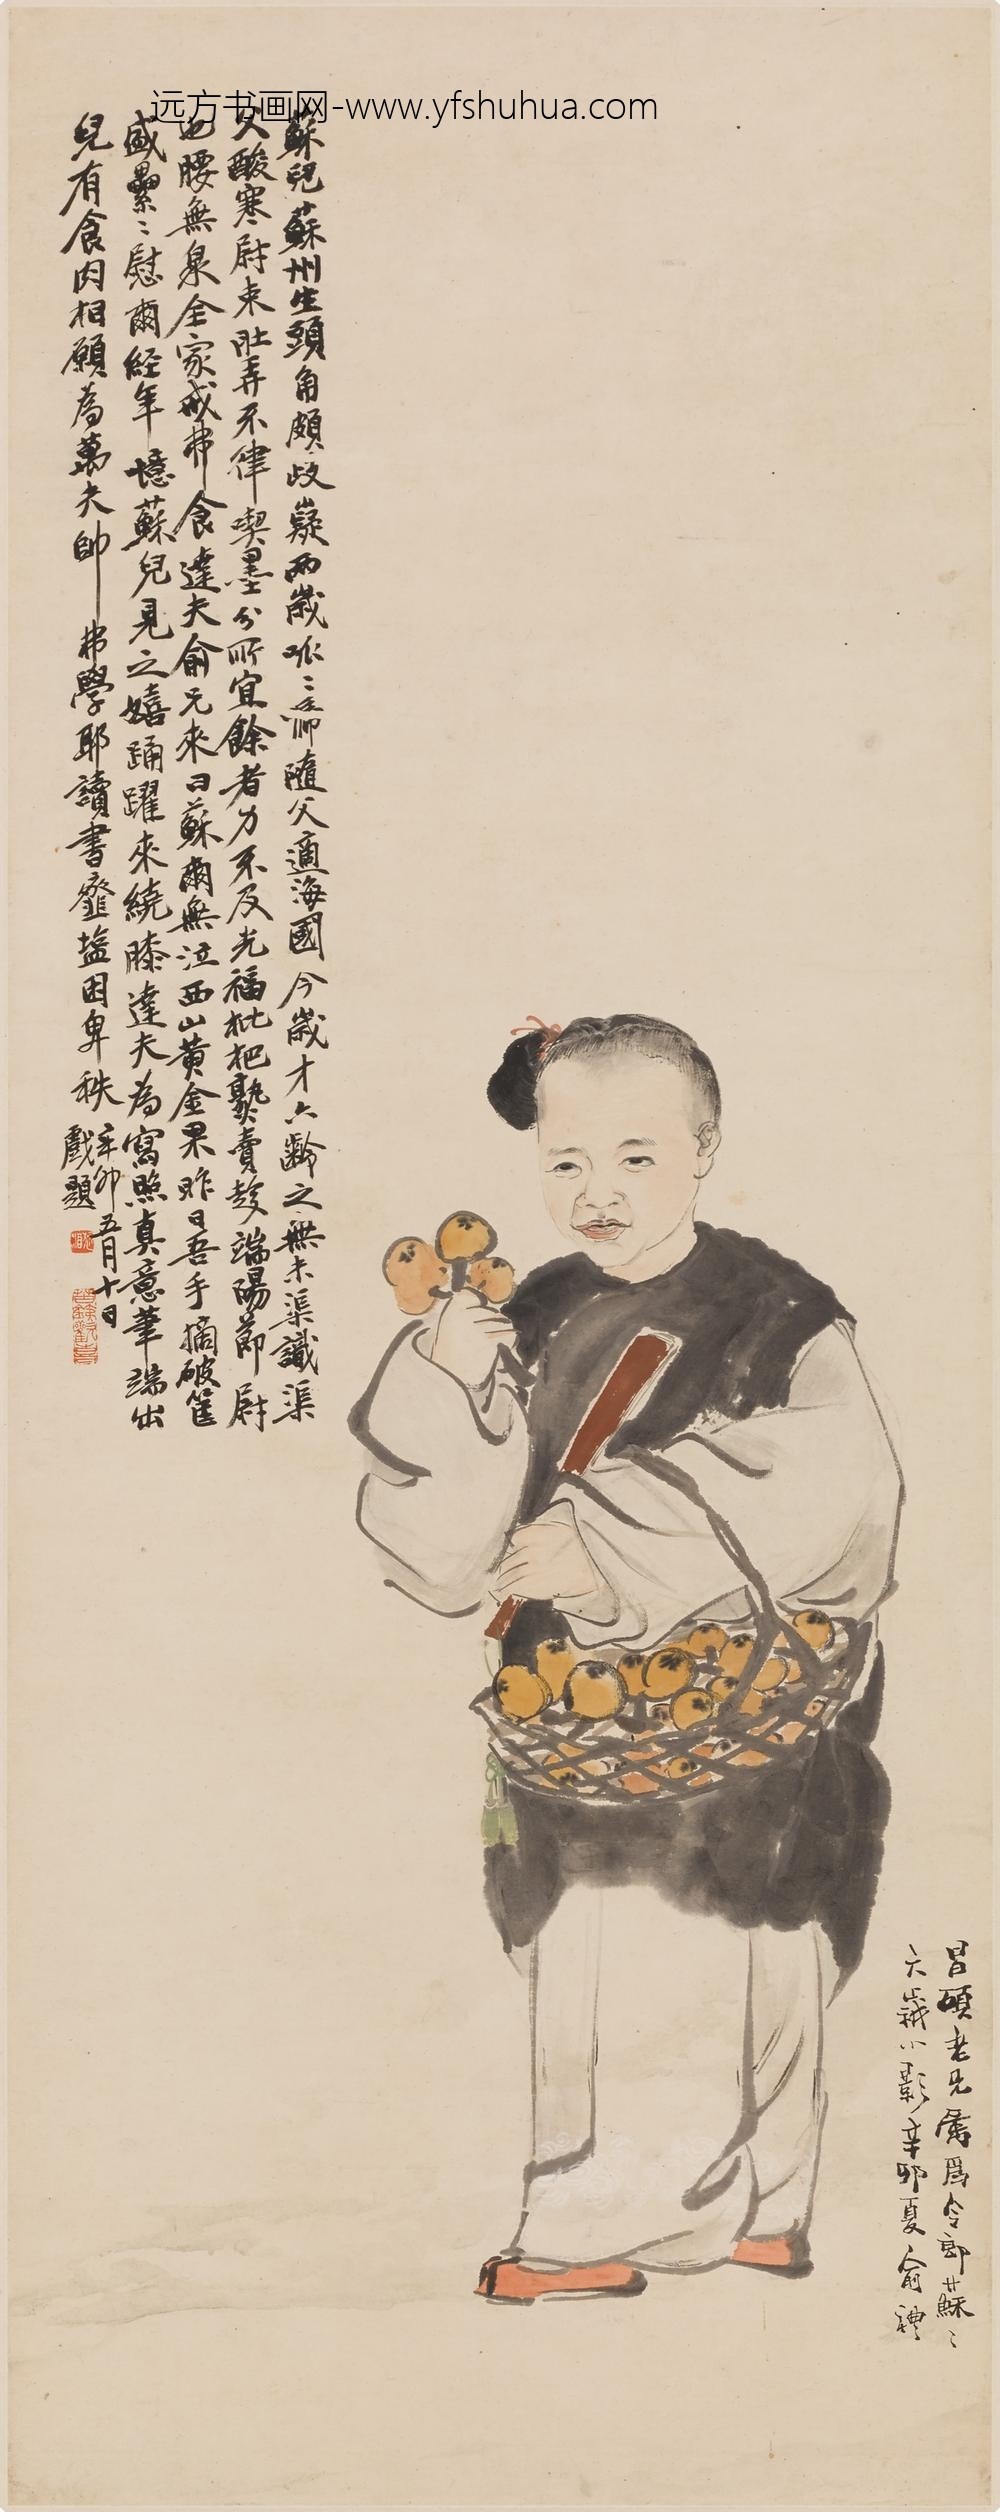 远方书画网-www.yfshuhua.com
蘇兒蘇州生頭角頗歧嶷兩歲呱〻啼隨父適海國今歲才六齡之無未渠識渠
父酸寒尉束肚弄不律喫墨分所宜餘者力不及光福枇杷熟賣趁端陽節尉
也腰無泉全家戒弗食達夫俞兄來曰蘇爾無泣西山黃金果昨日吾手摘破筐
盛纍〻慰爾經年憶蘇兒見之嬉踊躍來繞膝達夫為寫照真意筆端出
兒有食肉相願為萬夫帥弗學耶讀書虀鹽困卑秩
辛卯五月十日
戲題
昌碩老兄屬爲令郎蘇〻
六歲小影辛卯夏俞禮